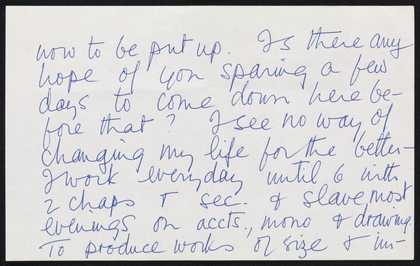 now to be put up. Is there any
hope of you sparing a few
days to come down here be-
fore that? I see no way of
changing my life for the better-
I work everyday until 6 with
2 chaps + sec. & slave, most
evenings on accts., mono & drawing.
To produce works of size & im-